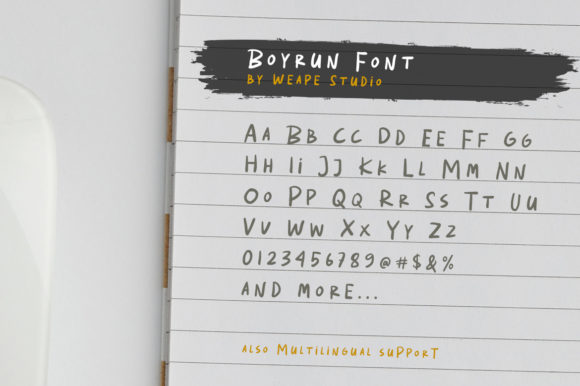 BOYRUN FONT
BY WEAPE STUDiO
AA BB CC DD EE FF GG
HH Ii JJ KK LL MM NN
OO PP QQ RR SS TT UU
VV WW XX YY ZZ
0123456789@#$&%
AND MORE...
ALSO MULTILINGUAL SUPPORT